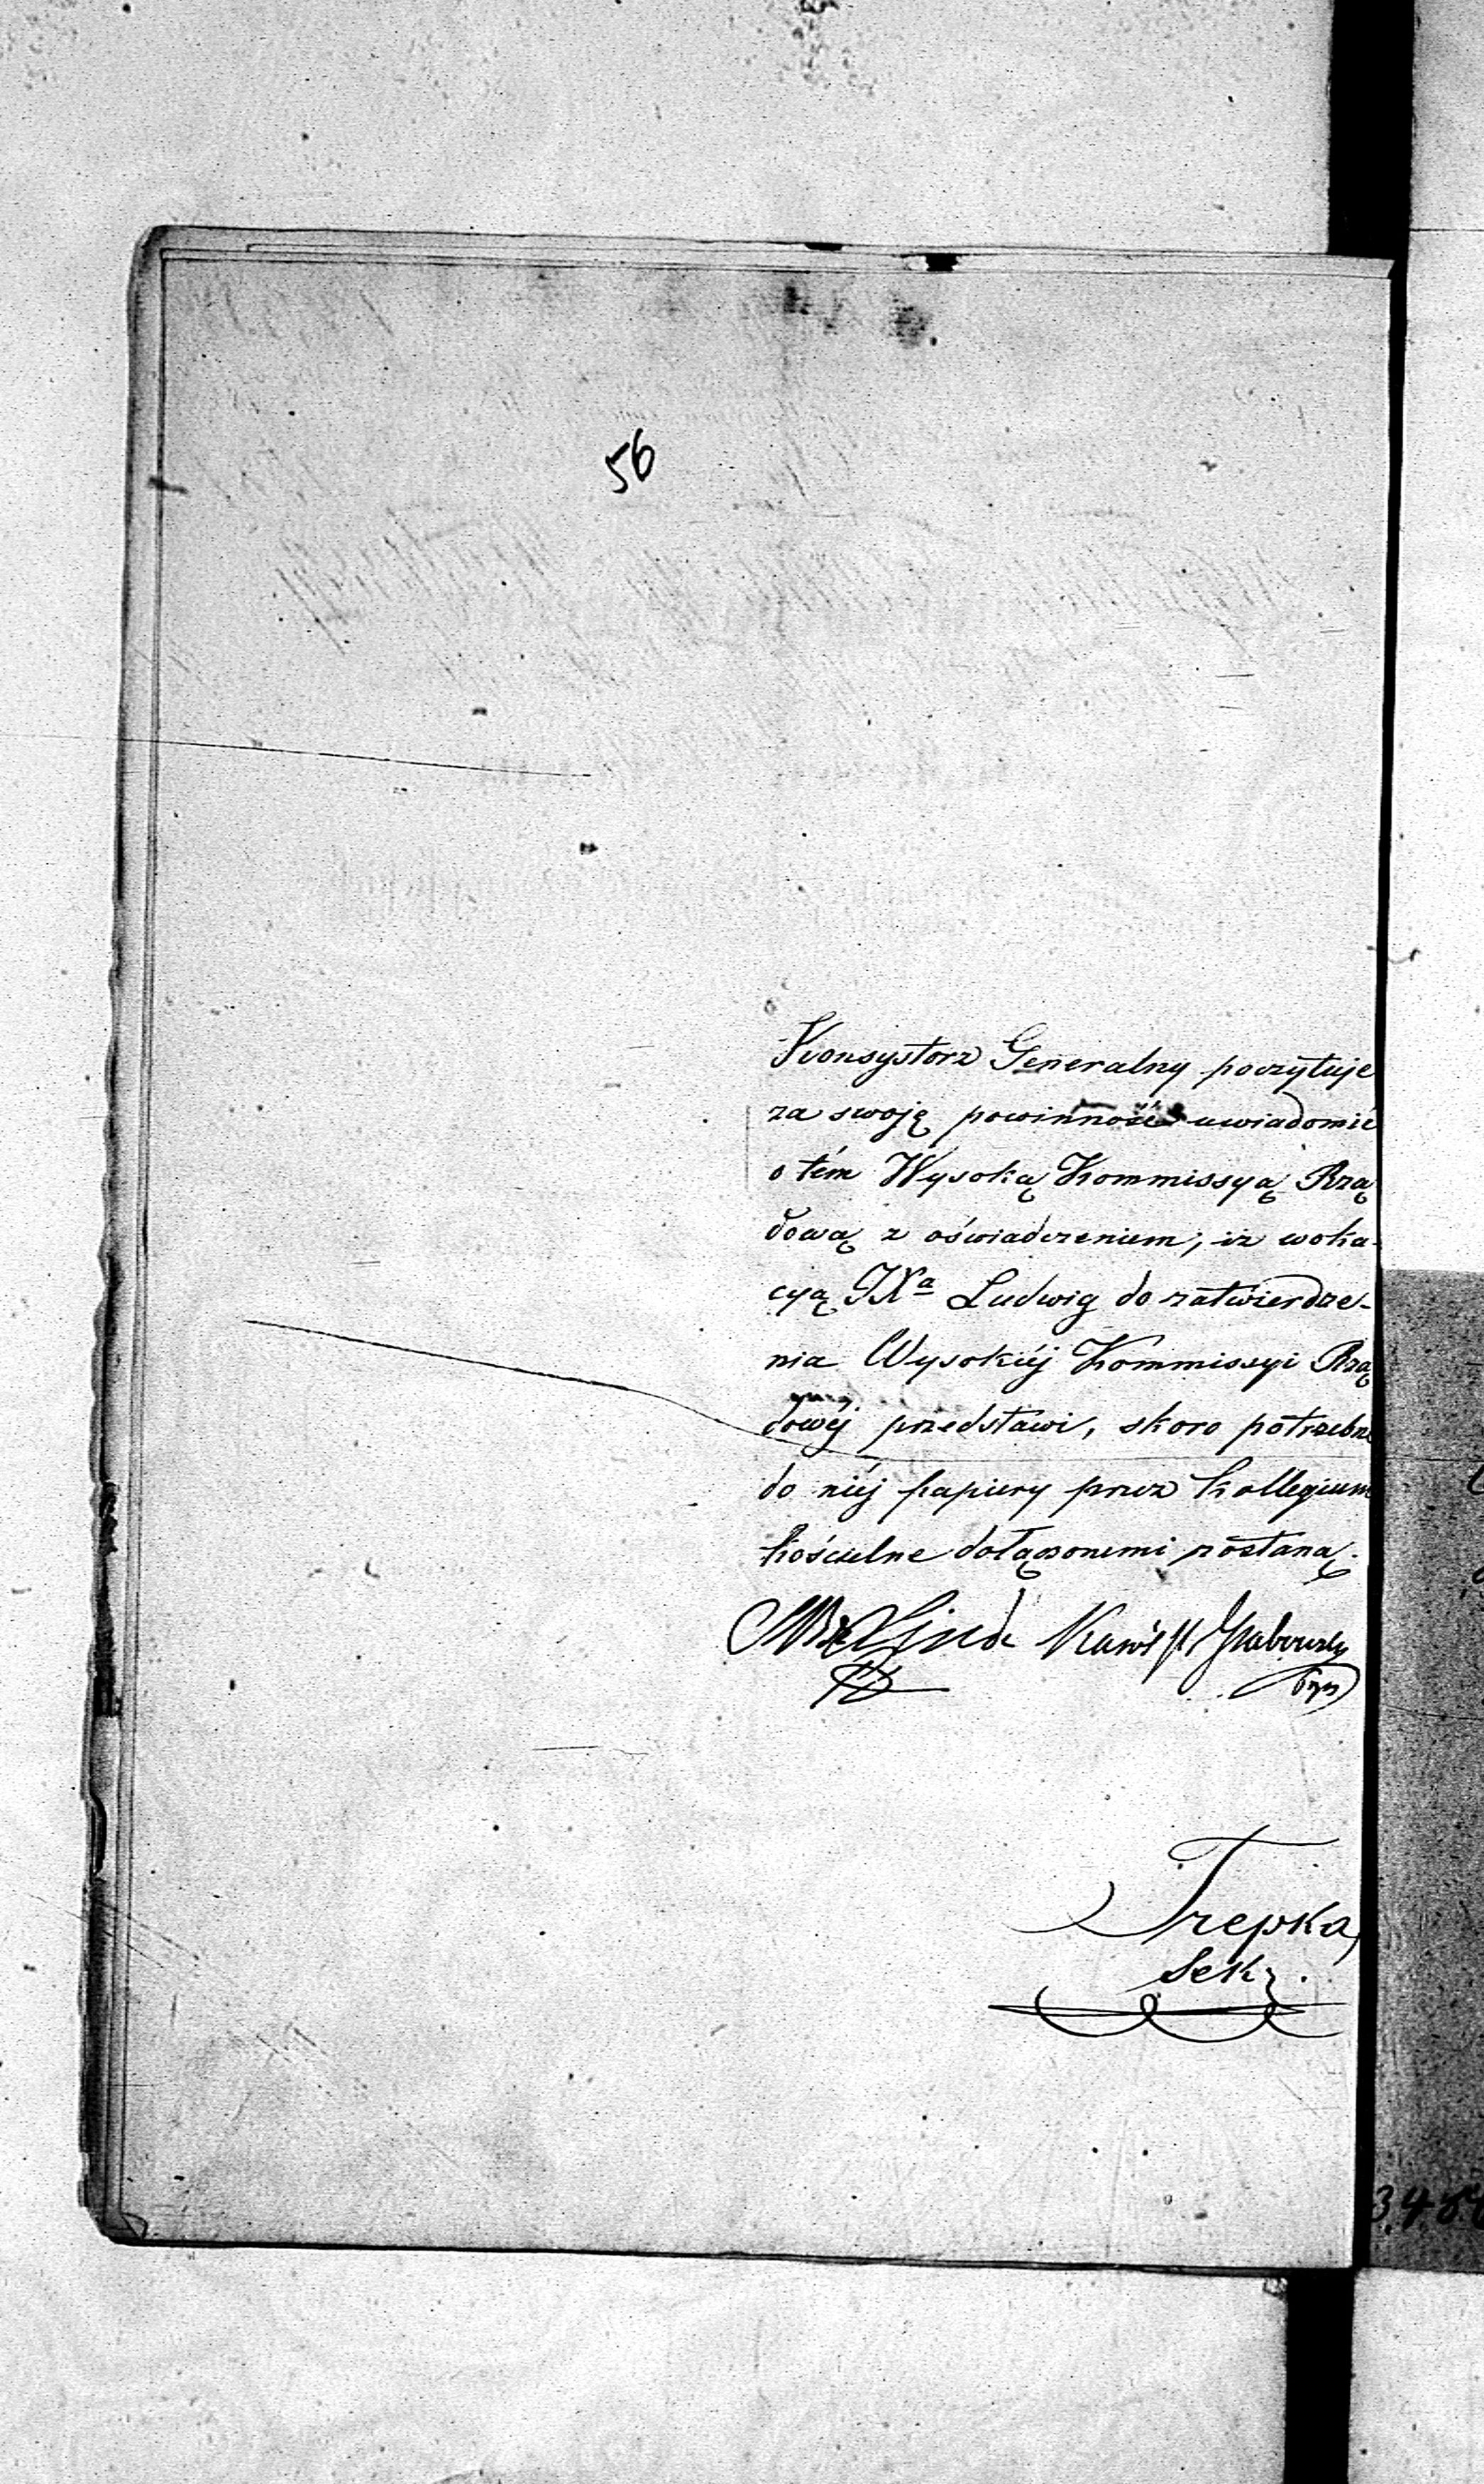 56
Konsystorz Generalny poczytuje
za swoję powinność uwiadomić
o tém Wysoką Kommissyą Rzą
dową z oświadczeniem, iż woka-
cyą JXa Ludwig do zatwierdze-
nia Wysokiéj Kommissyi Rzą
dowéj przedstawi, skoro potrzebne
do niéj papiery przez Kollegium
Kościelne dołączonemi zostaną.
Linde Karol Hr Grabowski
Trepka,
Sekr.
348